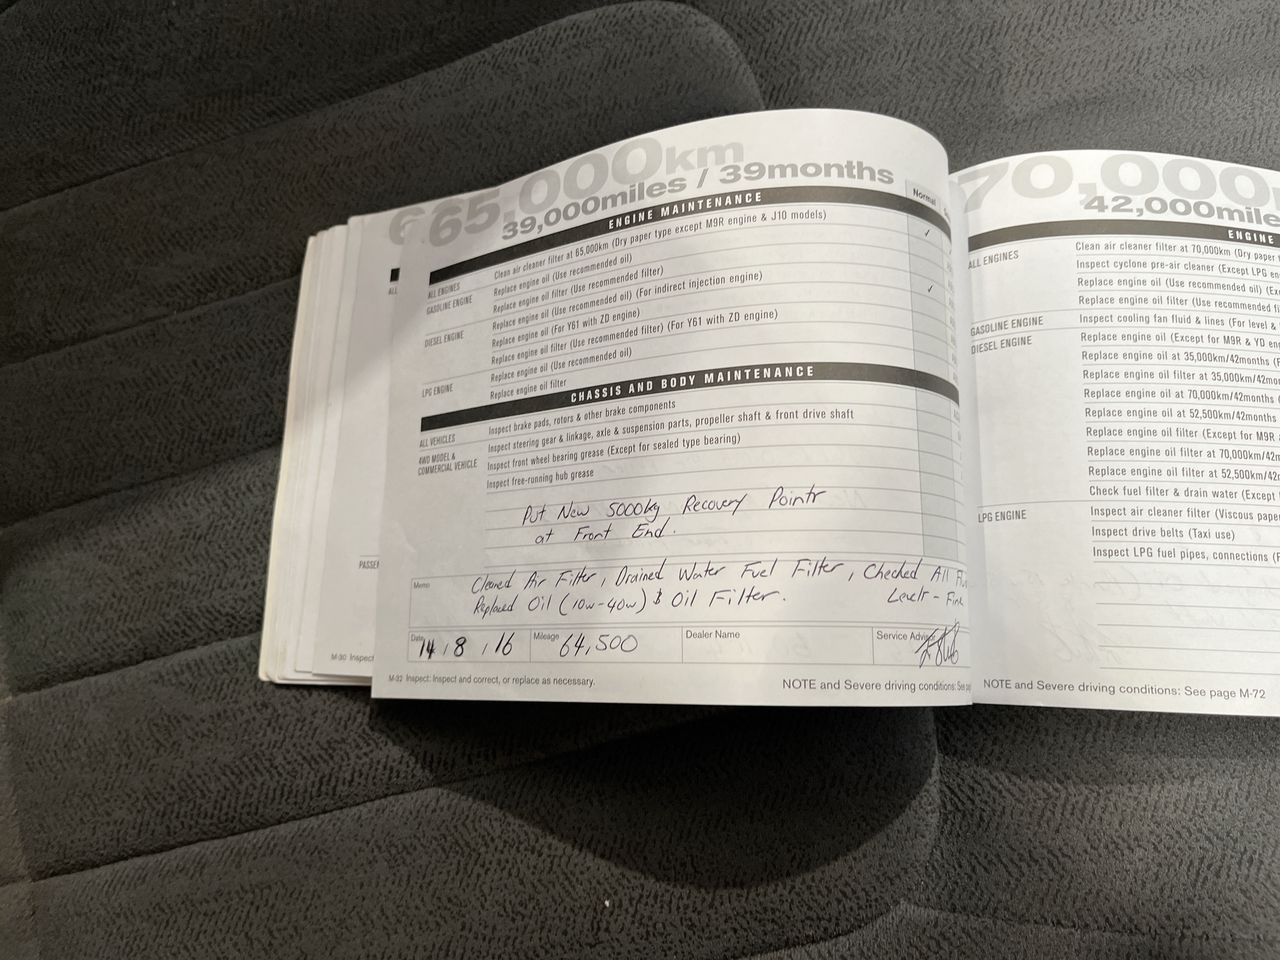 65,000km
39,000miles / 39months
Normal
ENGINE MAINTENANCE
ALL ENGINES Clean air cleaner filter at 65,000km (Dry paper type except M9R engine & J10 models) ✓
GASOLINE ENGINE Replace engine oil (Use recommended oil)
Replace engine oil filter (Use recommended filter)
DIESEL ENGINE Replace engine oil (Use recommended oil) (For indirect injection engine) ✓
Replace engine oil (For Y61 with ZD engine)
Replace engine oil filter (Use recommended filter) (For Y61 with ZD engine)
LPG ENGINE Replace engine oil (Use recommended oil)
Replace engine oil filter
CHASSIS AND BODY MAINTENANCE
ALL VEHICLES Inspect brake pads, rotors & other brake components
Inspect steering gear & linkage, axle & suspension parts, propeller shaft & front drive shaft
4WD MODEL & COMMERCIAL VEHICLE Inspect front wheel bearing grease (Except for sealed type bearing)
Inspect free-running hub grease
Put New 5000kg Recovery Points
at Front End.
Memo Cleaned Air Filter, Drained Water Fuel Filter, Checked All
Replaced Oil (10w-40w) & Oil Filter. Levels - Fine
Date 14 / 8 / 16 Mileage 64,500 Dealer Name Service Advisor
M-32 Inspect: Inspect and correct, or replace as necessary.
NOTE and Severe driving conditions: See
ALL
PASSE
M-30 Inspect
70,000
42,000mile
ENGINE
ALL ENGINES Clean air cleaner filter at 70,000km (Dry paper
Inspect cyclone pre-air cleaner (Except LPG en
Replace engine oil (Use recommended oil) (Ex
Replace engine oil filter (Use recommended fi
GASOLINE ENGINE Inspect cooling fan fluid & lines (For level &
DIESEL ENGINE Replace engine oil (Except for M9R & YD en
Replace engine oil at 35,000km/42months (F
Replace engine oil filter at 35,000km/42mon
Replace engine oil at 70,000km/42months (
Replace engine oil at 52,500km/42months
Replace engine oil filter (Except for M9R
Replace engine oil filter at 70,000km/42m
Replace engine oil filter at 52,500km/42
Check fuel filter & drain water (Except
LPG ENGINE Inspect air cleaner filter (Viscous pape
Inspect drive belts (Taxi use)
Inspect LPG fuel pipes, connections (F
NOTE and Severe driving conditions: See page M-72